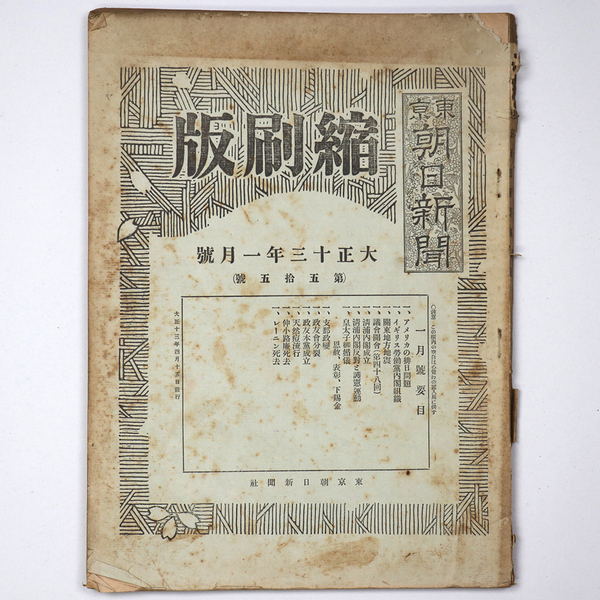 東京
朝日新聞
縮刷版
大正十三年一月號
(第五拾五號)
一月號要目
一、アメリカの排日問題
一、イギリス勞働黨內閣組織
一、關東地方地震
一、議會開會(第四十八回)
一、淸浦內閣成立
一、淸浦內閣反對と護憲運動
一、皇太子御婚儀
恩赦、表彰、下賜金
一、支那政變
一、政友會分裂
一、政友本黨成立
一、天然痘流行
一、仲小路廉死去
一、レーニン死去
大正十三年四月十五日發行
東京朝日新聞社